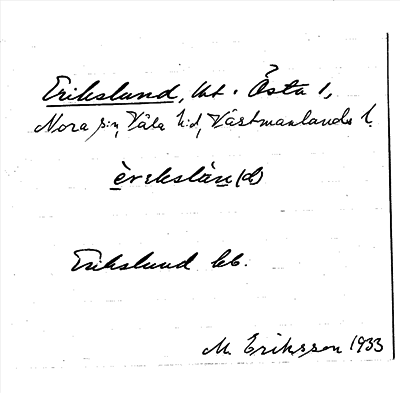 Erikslund, lht. Östa 1,
Nora sn, Våla hd, Västmanlands l.
èrikslùn(d)
Erikslund kb.
M. Eriksson 1933